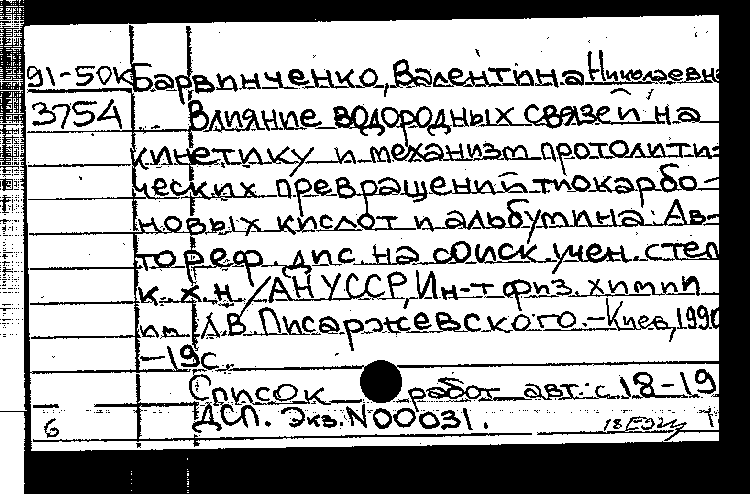 91-50К Барвинченко, Валентина Николаевна
3754 Влияние водородных связей на
кинетику и механизм протолити-
ческих превращений тиокарбо-
новых кислот и альбутина: Ав-
тореф. дис. на соиск. учен. степ
к. х. н. / АН УССР, Ин-т физ. химии
им Л.В. Писаржевского. – Киев, 1990
– 19с.
Список работ авт.: с. 18-19
6 ДСП. Экз. N00031.